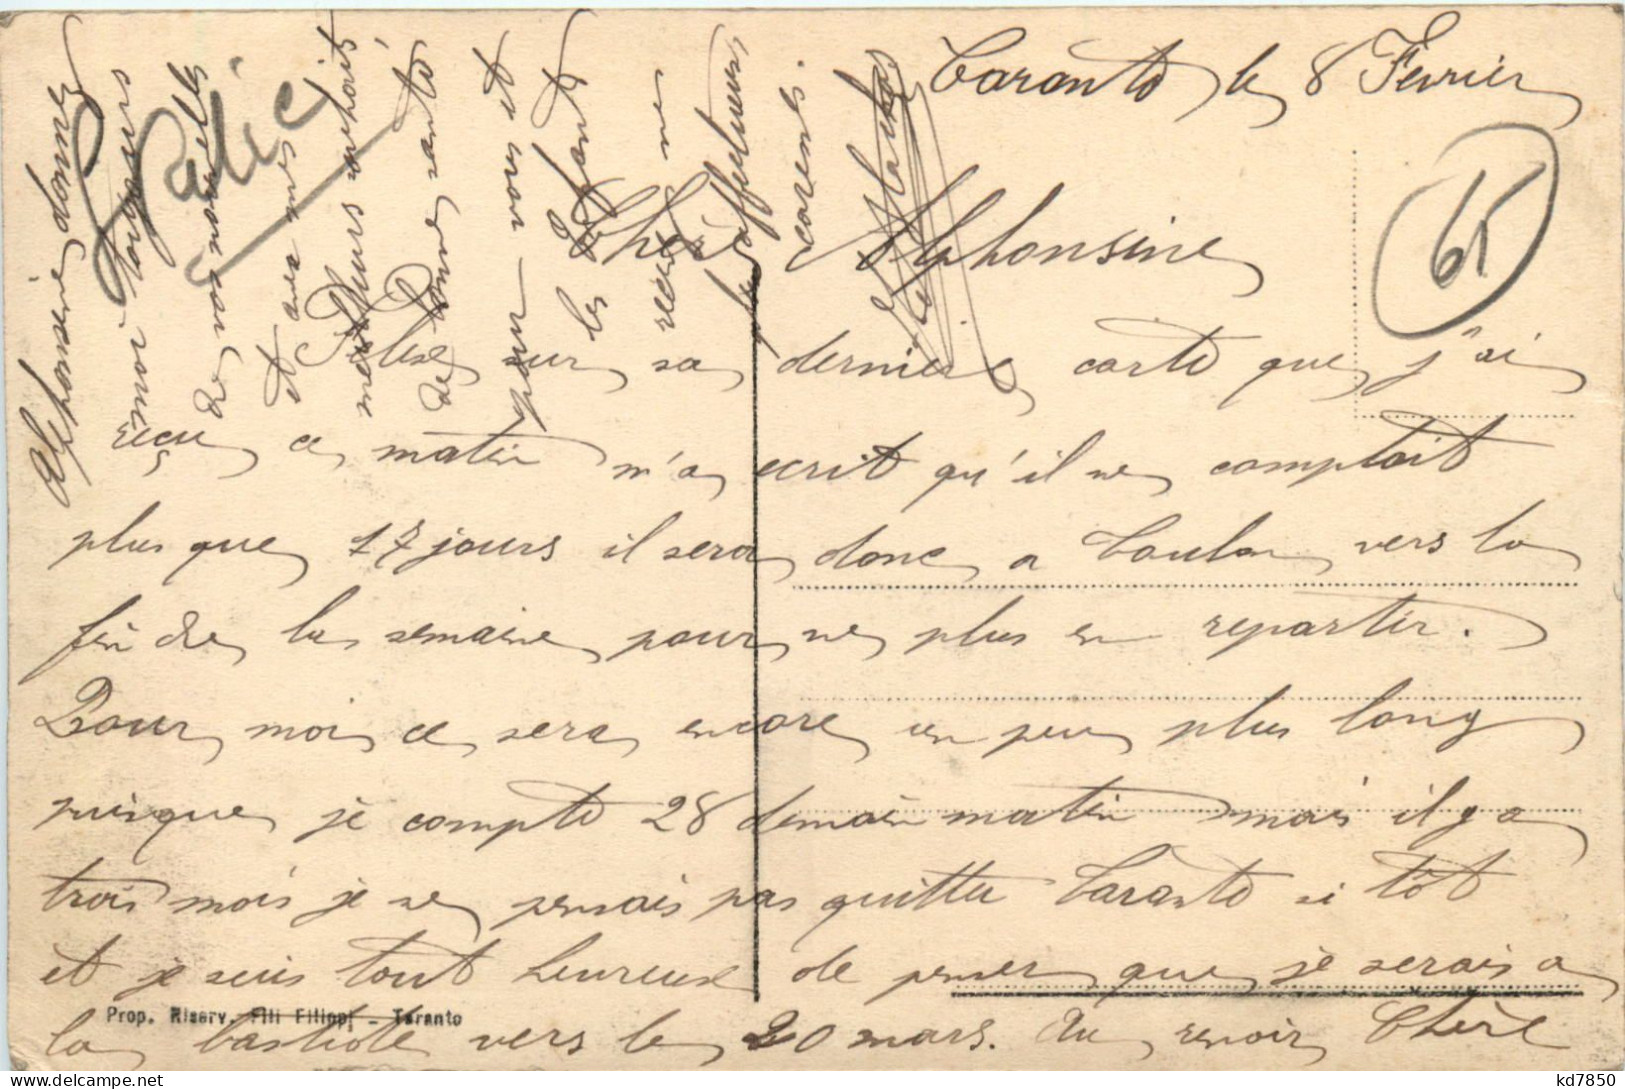 Taranto le 8 Fevrier
Chère Alphonsine
Felix sur sa dernière carte que j'ai
reçu ce matin m'a ecrit qu'il ne comptait
plus que 17 jours il sera donc a Toulon vers la
fin de la semaine pour ne plus en repartir.
Pour moi ce sera encore un peu plus long
puisque je compte 28 demain matin mais il y a
trois mois je ne pensais pas quitter Taranto si tôt
et je suis tout heureux de penser que je serais a
la bastide vers le 20 mars. Au revoir Chère
Alphonsine donnez
moi toujours
de vos nouvelles
et avec mes
meilleurs souhaits
de bonne santé
pour vous et
les enfants
recevez mes
plus affectueuses
caresses.
Italie
65
Prop. Riserv. Flli Filippi - Taranto
kd7850